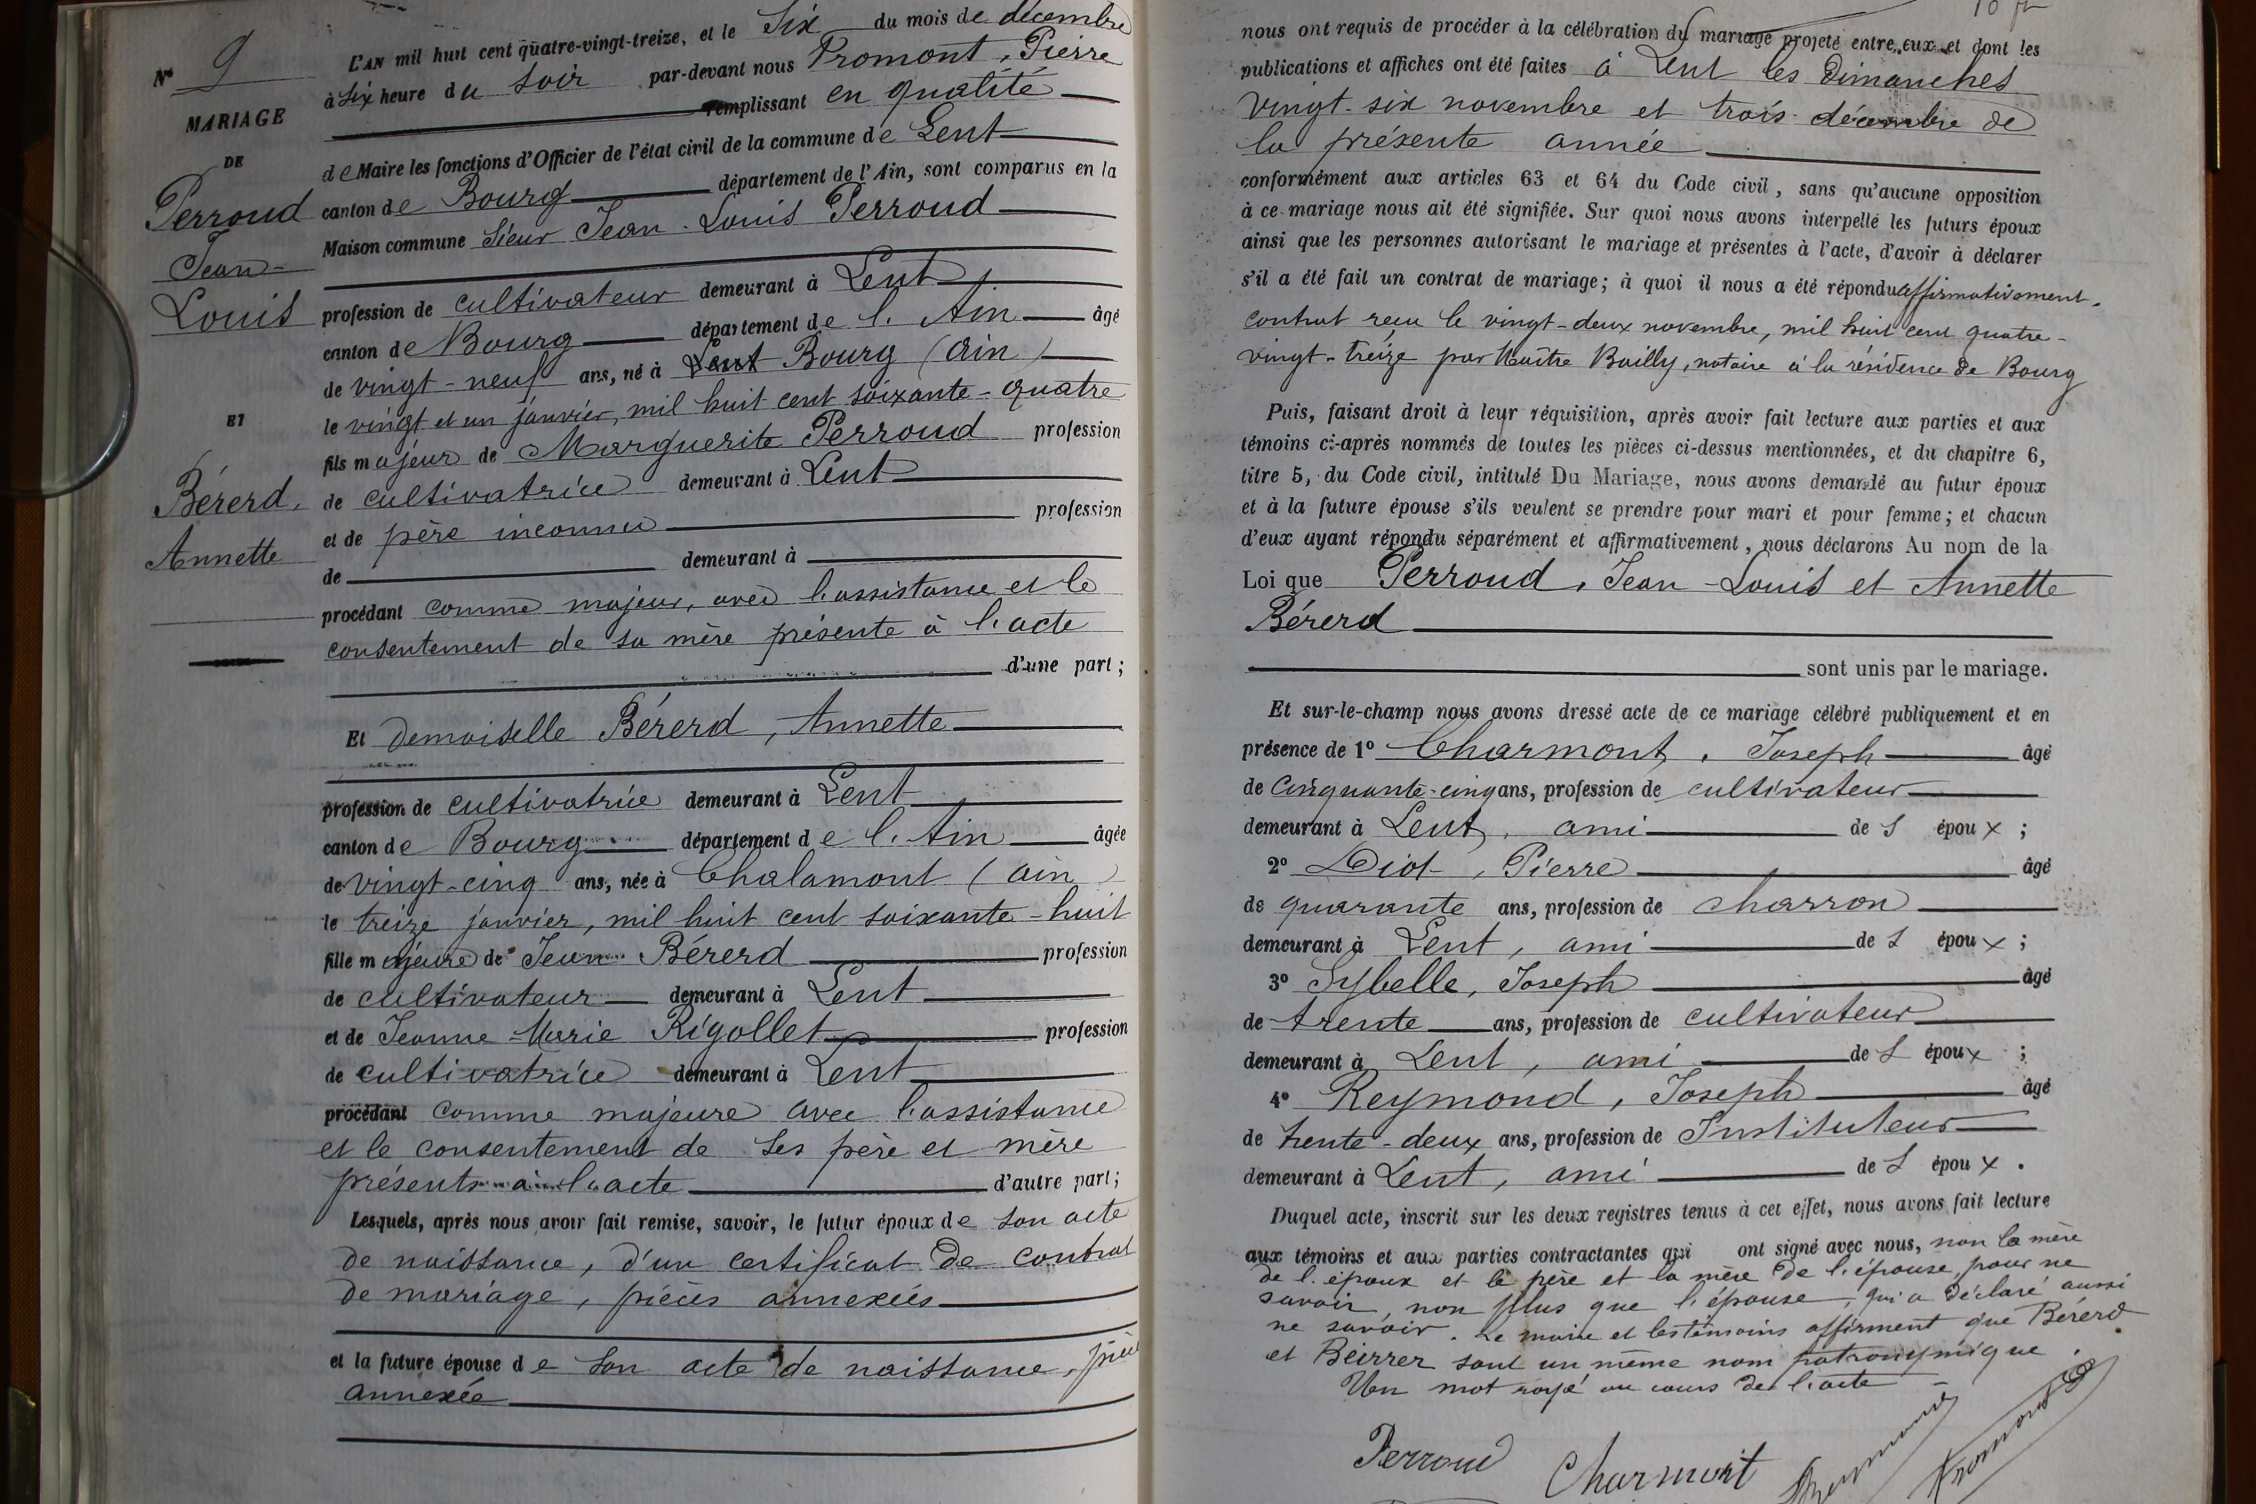 N° 9
MARIAGE
DE
Perroud
Jean-
Louis
ET
Bérerd,
Annette
L'AN mil huit cent quatre-vingt-treize, et le Six du mois de décembre
à six heure du Soir par-devant nous Promont, Pierre
remplissant en qualité
de Maire les fonctions d'Officier de l'état civil de la commune de Lent
canton de Bourg département de l'Ain, sont comparus en la
Maison commune Sieur Jean-Louis Perroud
profession de cultivateur demeurant à Lent
canton de Bourg département de l'Ain âgé
de vingt-neuf ans, né à Lent Bourg (Ain)
le vingt et un janvier, mil huit cent soixante-quatre
fils majeur de Marguerite Perroud profession
de cultivatrice demeurant à Lent
et de père inconnu profession
de demeurant à
procédant comme majeur, avec l'assistance et le
consentement de sa mère présente à l'acte
d'une part;
Et demoiselle Bérerd, Annette
profession de cultivatrice demeurant à Lent
canton de Bourg département de l'Ain âgée
de vingt-cinq ans, née à Chalamont (Ain)
le treize janvier, mil huit cent soixante-huit
fille majeure de Jean Bérerd profession
de cultivateur demeurant à Lent
et de Jeanne-Marie Rigollet profession
de cultivatrice demeurant à Lent
procédant comme majeure avec l'assistance
et le consentement de ses père et mère
présents à l'acte d'autre part;
Lesquels, après nous avoir fait remise, savoir, le futur époux de son acte
de naissance, d'un certificat de contrat
de mariage, pièces annexées
et la future épouse de son acte de naissance, pièce
annexée
nous ont requis de procéder à la célébration du mariage projeté entre eux et dont les
publications et affiches ont été faites à Lent les Dimanches
vingt-six novembre et trois décembre de
la présente année
conformément aux articles 63 et 64 du Code civil, sans qu'aucune opposition
à ce mariage nous ait été signifiée. Sur quoi nous avons interpellé les futurs époux
ainsi que les personnes autorisant le mariage et présentes à l'acte, d'avoir à déclarer
s'il a été fait un contrat de mariage; à quoi il nous a été répondu affirmativement.
contrat reçu le vingt-deux novembre, mil huit cent quatre-
vingt-treize par Maître Bailly, notaire à la résidence de Bourg
Puis, faisant droit à leur réquisition, après avoir fait lecture aux parties et aux
témoins ci-après nommés de toutes les pièces ci-dessus mentionnées, et du chapitre 6,
titre 5, du Code civil, intitulé Du Mariage, nous avons demandé au futur époux
et à la future épouse s'ils veulent se prendre pour mari et pour femme; et chacun
d'eux ayant répondu séparément et affirmativement, nous déclarons Au nom de la
Loi que Perroud, Jean-Louis et Annette
Bérerd
sont unis par le mariage.
Et sur-le-champ nous avons dressé acte de ce mariage célébré publiquement et en
présence de 1° Charmont, Joseph âgé
de Cinquante-cinq ans, profession de cultivateur
demeurant à Lent, ami des époux;
2° Diot, Pierre âgé
de quarante ans, profession de charron
demeurant à Lent, ami des époux;
3° Sybelle, Joseph âgé
de trente ans, profession de cultivateur
demeurant à Lent, ami des époux;
4° Reymond, Joseph âgé
de trente-deux ans, profession de Instituteur
demeurant à Lent, ami des époux.
Duquel acte, inscrit sur les deux registres tenus à cet effet, nous avons fait lecture
aux témoins et aux parties contractantes qui ont signé avec nous, non la mère
de l'époux et le père et la mère de l'épouse, pour ne
savoir, non plus que l'épouse, qui a déclaré aussi
ne savoir. Le maire et les témoins affirment que Bérerd
et Beirrer sont un même nom patronymique.
Un mot rayé au cours de l'acte
Perroud Charmont Reymond Promont